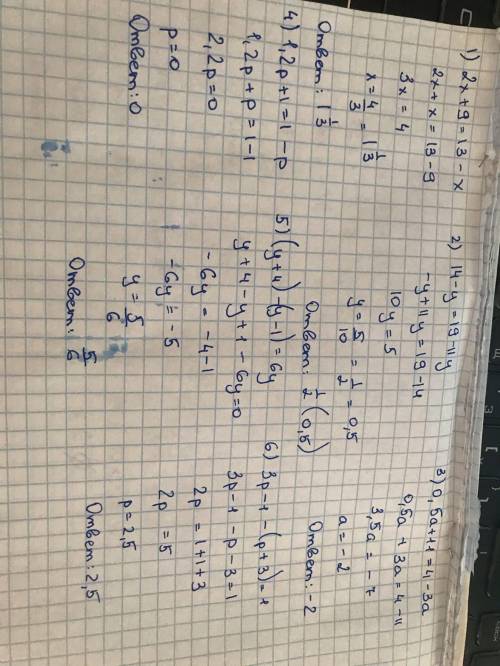 1) 2x+9=13-x
2x+x=13-9
3x=4
x=4/3=1 1/3
Ответ: 1 1/3
2) 14-y=19-11y
-y+11y=19-14
10y=5
y=5/10=1/2=0,5
Ответ: 1/2 (0,5)
3) 0,5a+11=4-3a
0,5a+3a=4-11
3,5a=-7
a=-2
Ответ: -2
4) 1,2p+1=1-p
1,2p+p=1-1
2,2p=0
p=0
Ответ: 0
5) (y+4)-(y-1)=6y
y+4-y+1-6y=0
-6y=-4-1
-6y=-5
y=5/6
Ответ: 5/6
6) 3p-1-(p+3)=1
3p-1-p-3=1
2p=1+1+3
2p=5
p=2,5
Ответ: 2,5